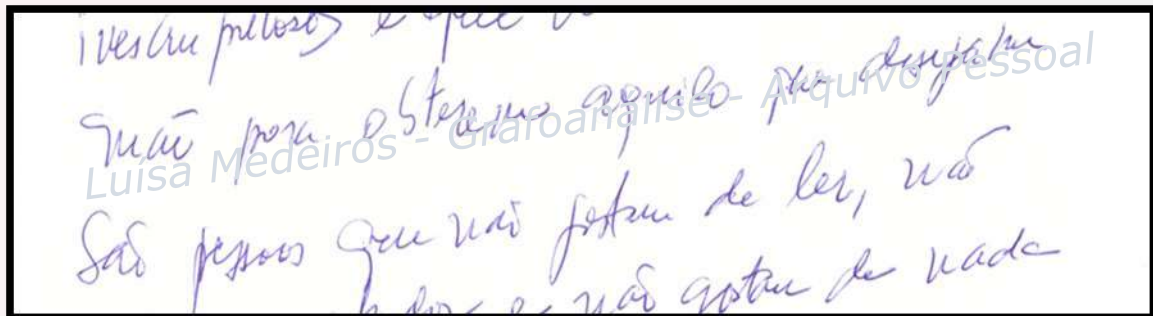 inescrupulosos e que
mão para obterem aquilo que desejam
Luísa Medeiros - Grafoanálise - Arquivo Pessoal
São pessoas que não gostam de ler, não
e não gostam de nada